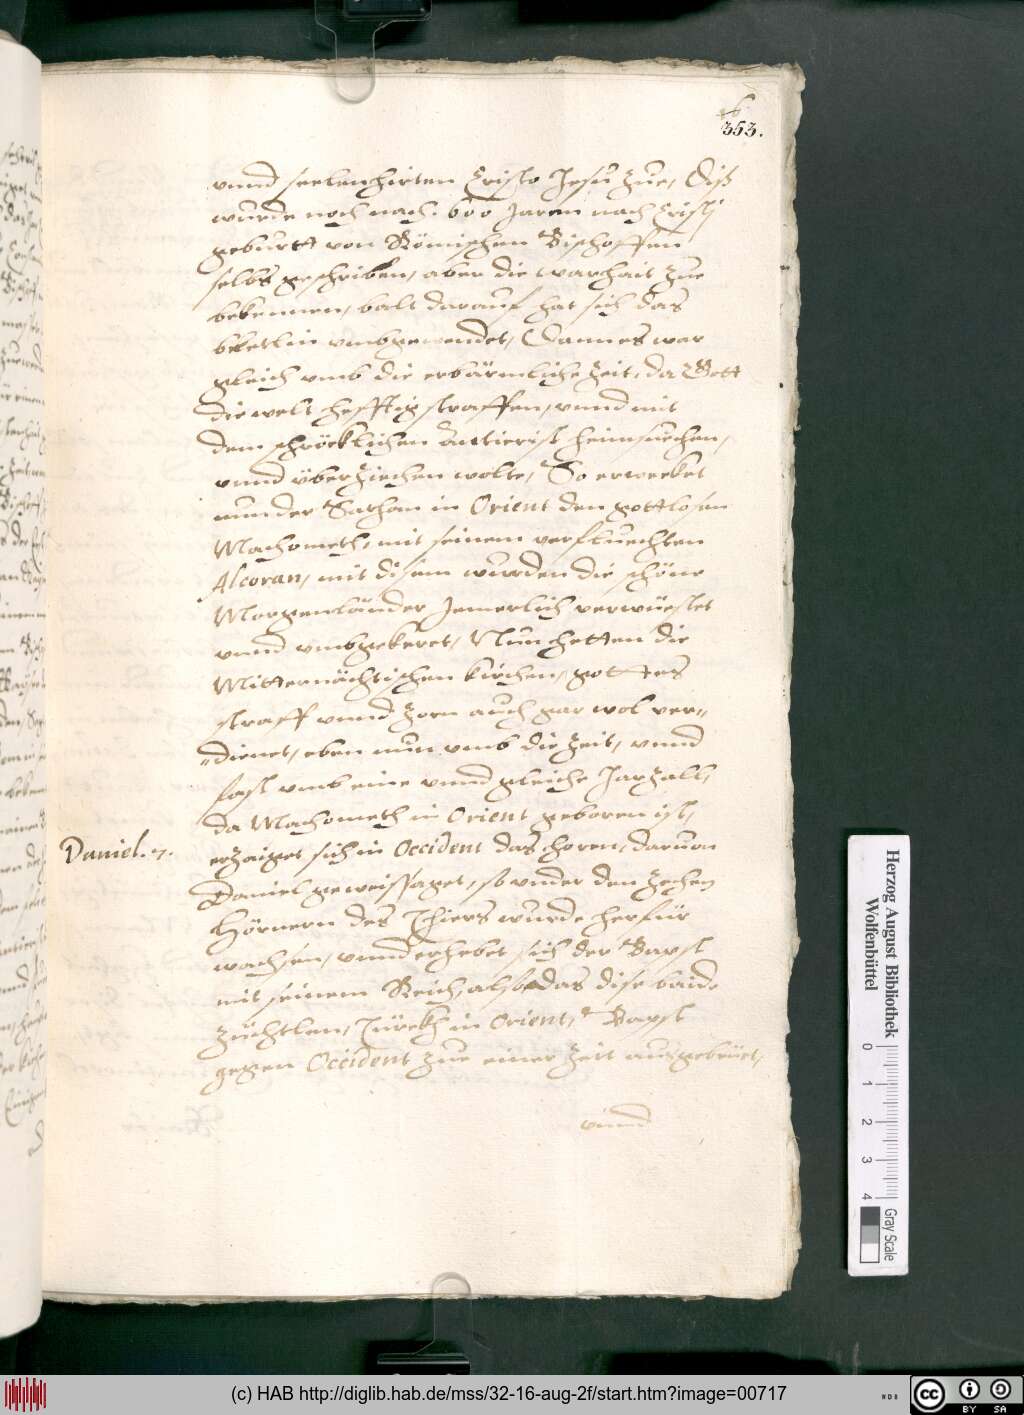 353.
vnnd seelenhirten Cristo Jesu zue, Diß
wurde noch nach 600 Jaren nach Cristj
geburtt von Römischen Bischoffen
selbs geschriben, aber die warhait zue
bekennen, balt darauf hat sich das
bletlin vmbgewendet, Dann es war
gleich vmb die erbärmliche Zeit, da Gott
die welt hefftig straffen, vnnd mit
dem schröcklichen Anticrist heimsuechen,
vnnd überziechen wolte, So erwecket
nun der Sathan in Orient den gottlosen
Machometh, mit seinem verfluechten
Alcoran, mit disem wurden die schöne
Morgenländer Jemerlich verwüestet
vnnd vmbgekeret, Nun hetten die
Mitternächtischen kirchen, gottes
straff vnnd Zorn auch gar wol ver„
„dienet, eben nun vmb die Zeit, vnnd
fast vmb eine vnnd gleiche Jarzall,
da Machometh in Orient geboren ist,
Daniel. 7.
erzaiget sich in Occident das horen, daruon
Daniel geweissaget, so vnder den Zehen
Hörnern des Thiers wurde herfür
wachsen, vnnd erhebet sich der Bapst
mit seinem Reich, also das dise baide
Züchtlen, Türckh in Orient, Bapst
gegen Occident zue einer Zeit ausgebrüet,
vnnd
Herzog August Bibliothek
Wolfenbüttel
0 1 2 3 4
Gray Scale
(c) HAB http://diglib.hab.de/mss/32-16-aug-2f/start.htm?image=00717
WDB
cc BY SA